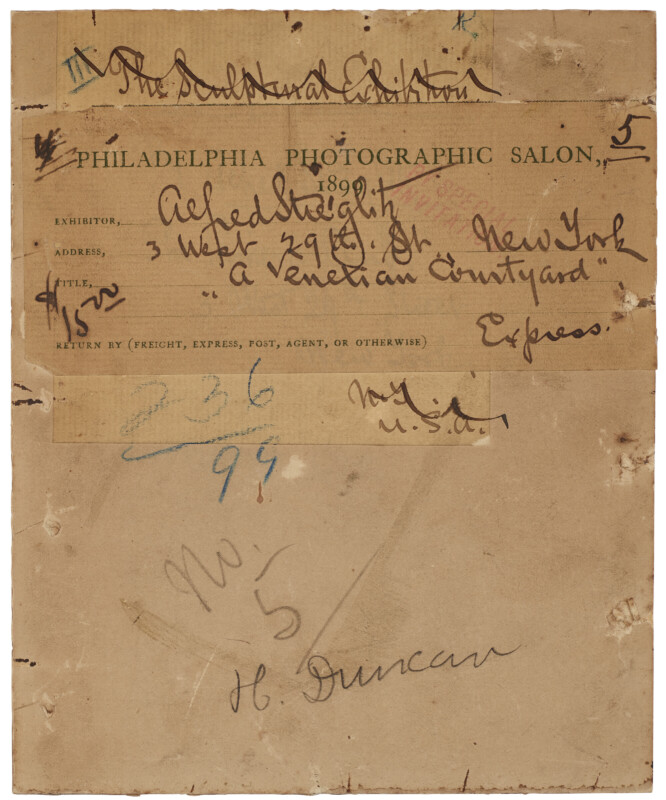 III
The Sculptural Exhibition.
5
PHILADELPHIA PHOTOGRAPHIC SALON,
1899
BY SPECIAL
INVITATION
EXHIBITOR, Alfred Stieglitz
ADDRESS, 3 West 29th. St., New York
TITLE, "A Venetian Courtyard"
$15.00
Express.
RETURN BY (FREIGHT, EXPRESS, POST, AGENT, OR OTHERWISE)
N.Y.
U.S.A.
236
99
No.
5
H. Duncan